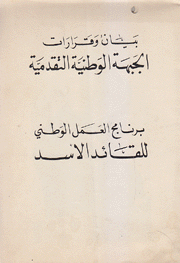 بيان وقرارات
الجبهة الوطنية التقدمية
برنامج العمل الوطني
للقائد الأسد